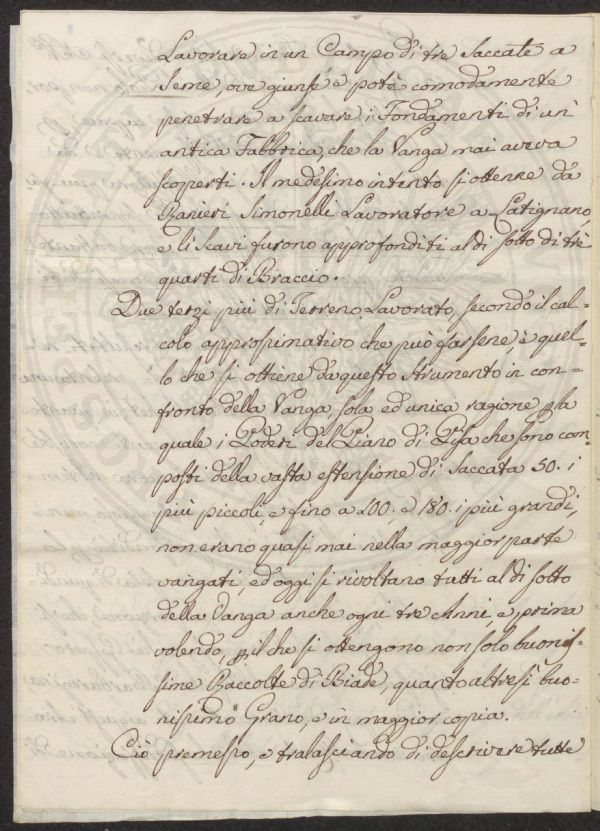 Lavorare in un Campo di tre Saccate a
Seme, ove giunse e potè comodamente
penetrare a scavare i Fondamenti di un'
antica Fabbrica, che la Vanga mai aveva
scoperti. Il medesimo intento si ottenne da
Ranieri Simonelli Lavoratore a Latignano,
e li scavi furono approfonditi al di sotto di trè
quarti di Braccio.
Due terzi più di Terreno Lavorato, secondo il cal-
colo approssimativo che può farsene, è quel-
lo che si ottiene da questo strumento in con-
fronto della Vanga, sola ed unica ragione p la
quale i Poderi del Piano di Pisa che sono com
posti della vasta estensione di Saccata 50. i
più piccoli, e fino a 100, e 180. i più grandi,
non erano quasi mai nella maggior parte
vangati, ed oggi si rivoltano tutti al di sotto
della Vanga anche ogni tre Anni, e prima
volendo, p il che si ottengono non solo buonis-
sime Raccolte di Biade, quanto altresì buo-
nissimo Grano, e in maggior copia.
Ciò premesso, e tralasciando di descrivere tutte